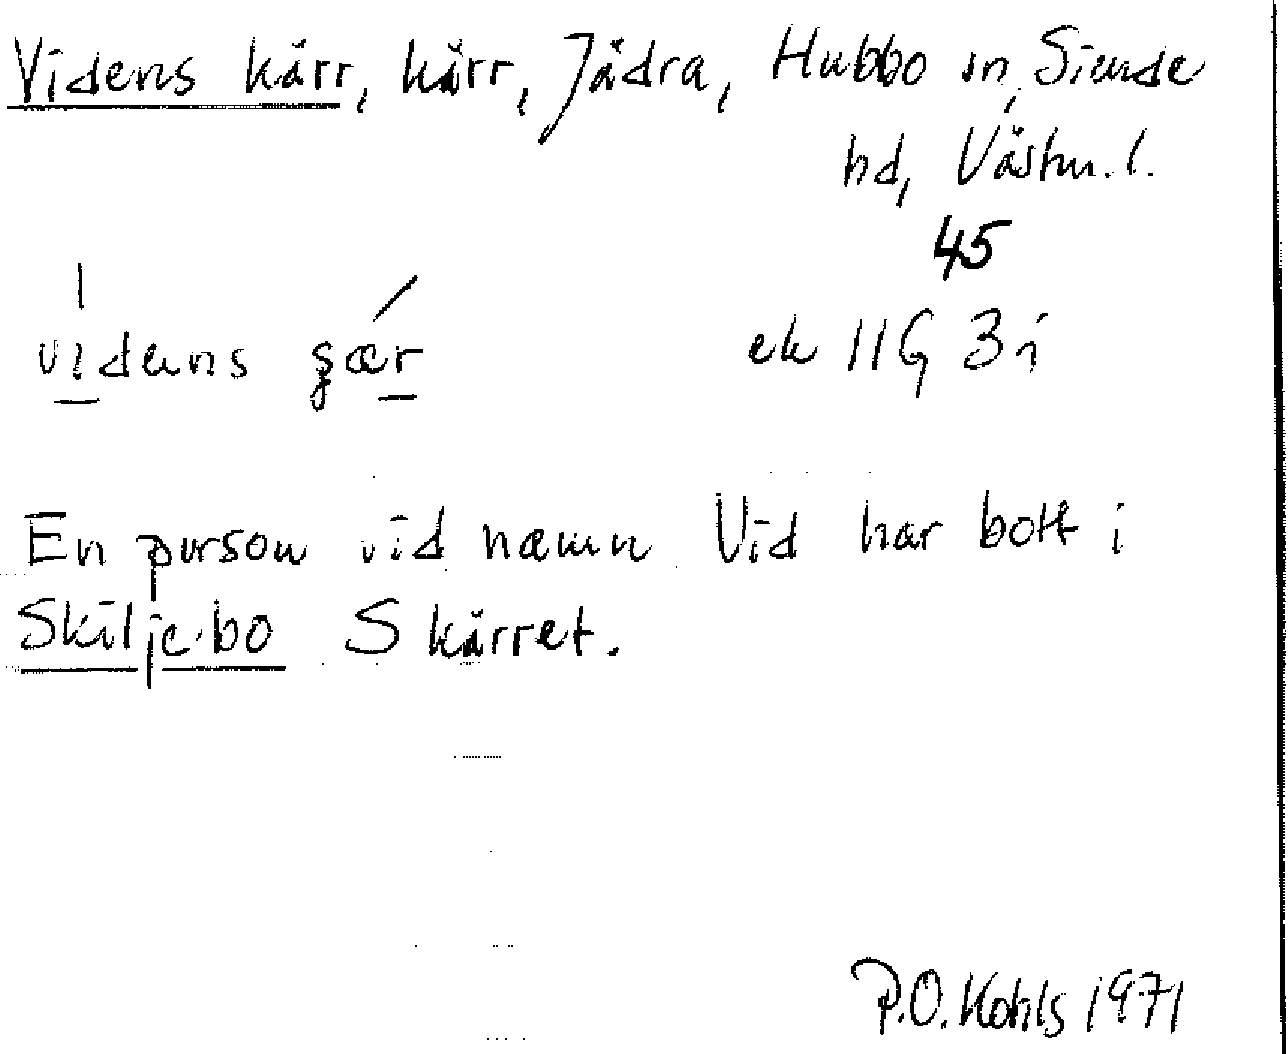 Videns kärr, kärr, Jädra, Hubbo sn, Siende
hd, Västm. l.
45
videns ꞩær
ek 11G 3i
En person vid namn Vid har bott i
Skiljebo S kärret.
P.O. Kohls 1971